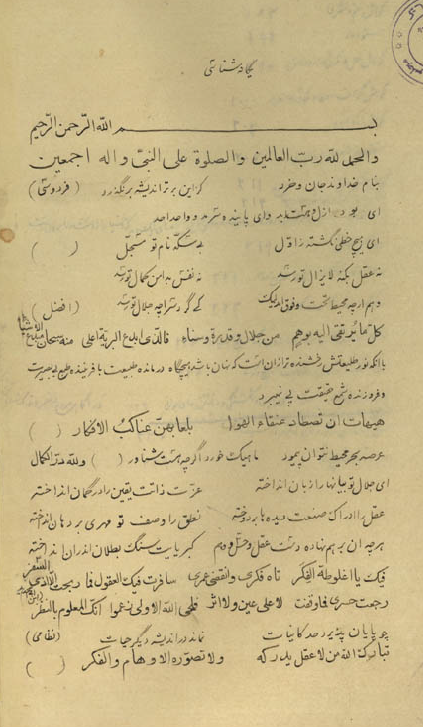 یگانه‌شناسی
بسم الله الرّحمن الرّحیم
والحمد لله ربّ العالمین والصلوة علی النبیّ واله اجمعین
بنام خداوند جان و خرد کزاین برتر اندیشه برنگذرد (فردوسی)
ای بوده در ازل و ای پاینده و واحد احد
ای زهیچ خطی نگشته ز اوّل بی سکّه نام تو مسجّل ( )
نه عقل بکنه لایزال تو رسد نه نفس به کمال تو رسد
وهم ارچه محیط تحت و فوق لیک کی گرد سراچه جلال تو رسد (افضل)
کلّ ما یرتقی الیه بوهم من جلال وقدرة وسناء فالّذی ابدع البریّة اعلی منه سبحان مبدع الاشیا
با آنکه نور طلیعتش رخشنده تر از آن است که پنهان باشد هیچگاه در مانده طبیعت با
و فروزنده شمع حقیقت پی نمیبرد
هیهات ان تصطاد عنقاء الهوا بلعابهنّ عناکب الافکار ( )
عرصه بحر محیط نتوان پیمود ماهیک خورد اگرچه هست شناور ( ) ولله درّ الکمال
ای جلال تو بیانها را زبان انداخته عزّت ذاتت یقین را در گمان انداخته
عقل را ادراک صنعت دیده ها بردوخته نطق را وصف تو مهری بر دهان انداخته
هرچه آن برهم نهاده دست عقل و حسّ و وهم کبریایت سنگ بطلان اندر آن انداخته
فیک یا اغلوطة الفِکَر تاه فکری وانقضی عمری سافرت فیک العقول فما ربحت الّا اذی السّفَر
رجعت حسری فما وقفت لا علی عین ولا اثر فلحی الله الاولی زعموا انّک المعلوم بالنظر
چو پایان پذیرد حد کاینات نماند در اندیشه دیگر جهات (نظامی)
تبارک الله من لا عقل یدرکه ولا تصوّره الاوهام والفکر ( )